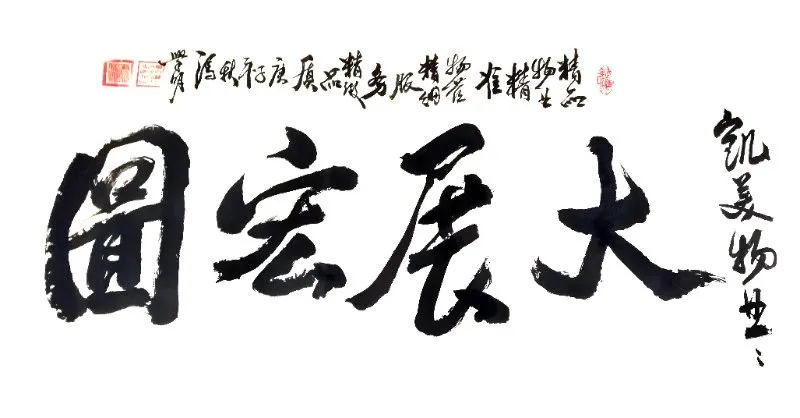 凯美物业
大展宏圖
精品物业精准物管精细服务精致品质庚子秋